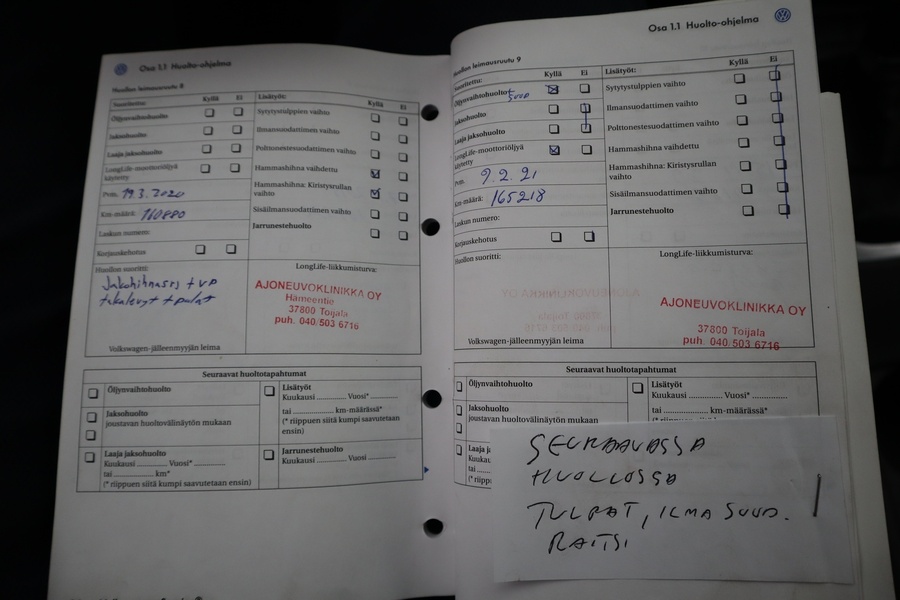 Osa 1.1 Huolto-ohjelma
Huollon leimausruutu 8
Suoritettu:
Kyllä
Ei
Öljynvaihtohuolto
Jaksohuolto
Laaja jaksohuolto
LongLife-moottoriöljyä
käytetty
Pvm. 19.3.2020
Km-määrä: 160880
Laskun numero:
Korjauskehotus
Lisätyöt:
Kyllä
Ei
Sytytystulppien vaihto
Ilmansuodattimen vaihto
Polttonestesuodattimen vaihto
Hammashihna vaihdettu
Hammashihna: Kiristysrullan
vaihto
Sisäilmansuodattimen vaihto
Jarrunestehuolto
Huollon suoritti:
Jakohihnasrj + VP
takalevyt + palat
Volkswagen-jälleenmyyjän leima
LongLife-liikkumisturva:
AJONEUVOKLINIKKA OY
Hämeentie
37800 Toijala
puh. 040 503 6716
Seuraavat huoltotapahtumat
Öljynvaihtohuolto
Jaksohuolto
joustavan huoltovälinäytön mukaan
Laaja jaksohuolto
Kuukausi ............ Vuosi* ............
tai ............ km*
(* riippuen siitä kumpi saavutetaan ensin)
Lisätyöt
Kuukausi ............ Vuosi* ............
tai ............ km-määrässä*
(* riippuen siitä kumpi saavutetaan
ensin)
Jarrunestehuolto
Kuukausi ............ Vuosi ............
Osa 1.1 Huolto-ohjelma
Huollon leimausruutu 9
Suoritettu:
Kyllä
Ei
Öljynvaihtohuolto +
suod
Jaksohuolto
Laaja jaksohuolto
LongLife-moottoriöljyä
käytetty
Pvm. 9.2.21
Km-määrä: 165218
Laskun numero:
Korjauskehotus
Lisätyöt:
Kyllä
Ei
Sytytystulppien vaihto
Ilmansuodattimen vaihto
Polttonestesuodattimen vaihto
Hammashihna vaihdettu
Hammashihna: Kiristysrullan
vaihto
Sisäilmansuodattimen vaihto
Jarrunestehuolto
Huollon suoritti:
Volkswagen-jälleenmyyjän leima
LongLife-liikkumisturva:
AJONEUVOKLINIKKA OY
37800 Toijala
puh. 040 503 6716
Seuraavat huoltotapahtumat
Öljynvaihtohuolto
Jaksohuolto
joustavan huoltovälinäytön mukaan
Laaja
Kuukau
tai ......
(* riipp
Lisätyöt
Kuukausi ............ Vuosi* ............
tai ............ km-määrässä*
SEURAAVASSA
HUOLLOSSA
TULPAT, ILMA SUOD.
RAITSI